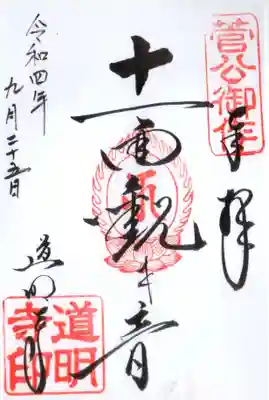 奉拝
菅公御作
十一面観世音
令和四年
九月二十五日
道明寺
道明
寺印